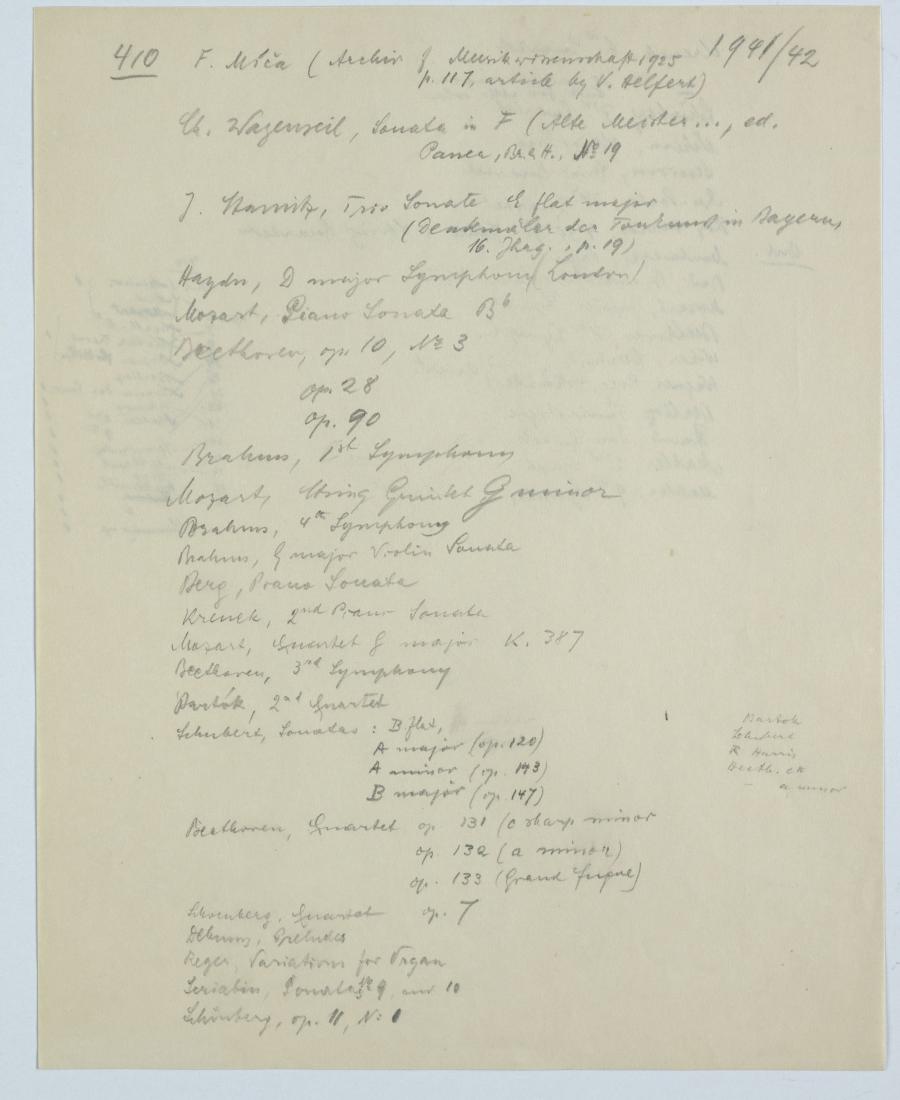 410 F. Míča (Archiv f. Musikwissenschaft 1925 1941/42
p. 117, article by V. Helfert)
Ch. Wagenseil, Sonata in F (Alte Meister..., ed.
Pauer, Br. & H., No 19
J. Stamitz, Trio Sonate E flat major
(Denkmäler der Tonkunst in Bayern,
16. Jhrg., p. 19)
Haydn, D major Symphony (London)
Mozart, Piano Sonata Bb
Beethoven, op. 10, No 3
op. 28
op. 90
Brahms, 1st Symphony
Mozart, String Quintet G minor
Brahms, 4th Symphony
Brahms, G major Violin Sonata
Berg, Piano Sonata
Krenek, 2nd Piano Sonata
Mozart, Quartet G major K. 387
Beethoven, 3rd Symphony
Bartók, 2nd Quartet
Schubert, Sonatas : B flat,
A major (op. 120)
A minor (op. 143)
B major (op. 147)
Bartok
Schubert
R Harris
Beeth. c#
– a minor
Beethoven, Quartet op. 131 (c sharp minor
op. 132 (a minor)
op. 133 (Grand Fugue)
Schoenberg, Quartet op. 7
Debussy, Preludes
Reger, Variations for Organ
Scriabin, Sonatas 9, and 10
Schönberg, op. 11, No 1